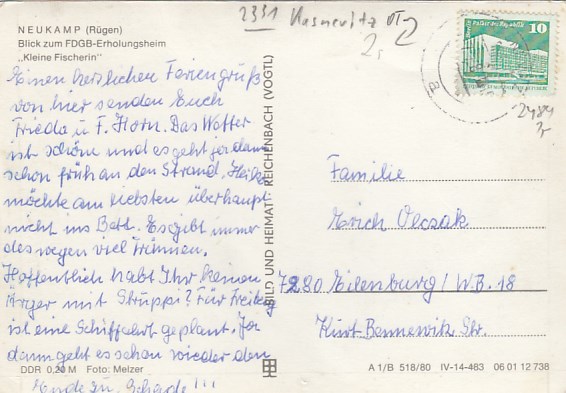 NEUKAMP (Rügen)
Blick zum FDGB-Erholungsheim
„Kleine Fischerin"
Einen herzlichen Feriengruß
von hier senden Euch
Frieda u. F. Horn. Das Wetter
ist schön und es geht ja dann
schon früh an den Strand. Heike
möchte am liebsten überhaupt
nicht ins Bett. Es gibt immer
deswegen viel Tränen.
Hoffentlich habt Ihr keinen
Ärger mit Struppi? Für Freitag
ist eine Schiffahrt geplant. Ja
dann geht es schon wieder dem
Ende zu. Schade!!!
DDR 0,20 M Foto: Melzer
BILD UND HEIMAT REICHENBACH (VOGTL)
2331 Kasnevitz
10
2484
Familie
Erich Olczak
7280 Eilenburg / W.B. 18
Kurt Bennewitz Str.
A 1/B 518/80 IV-14-483 06 01 12 738